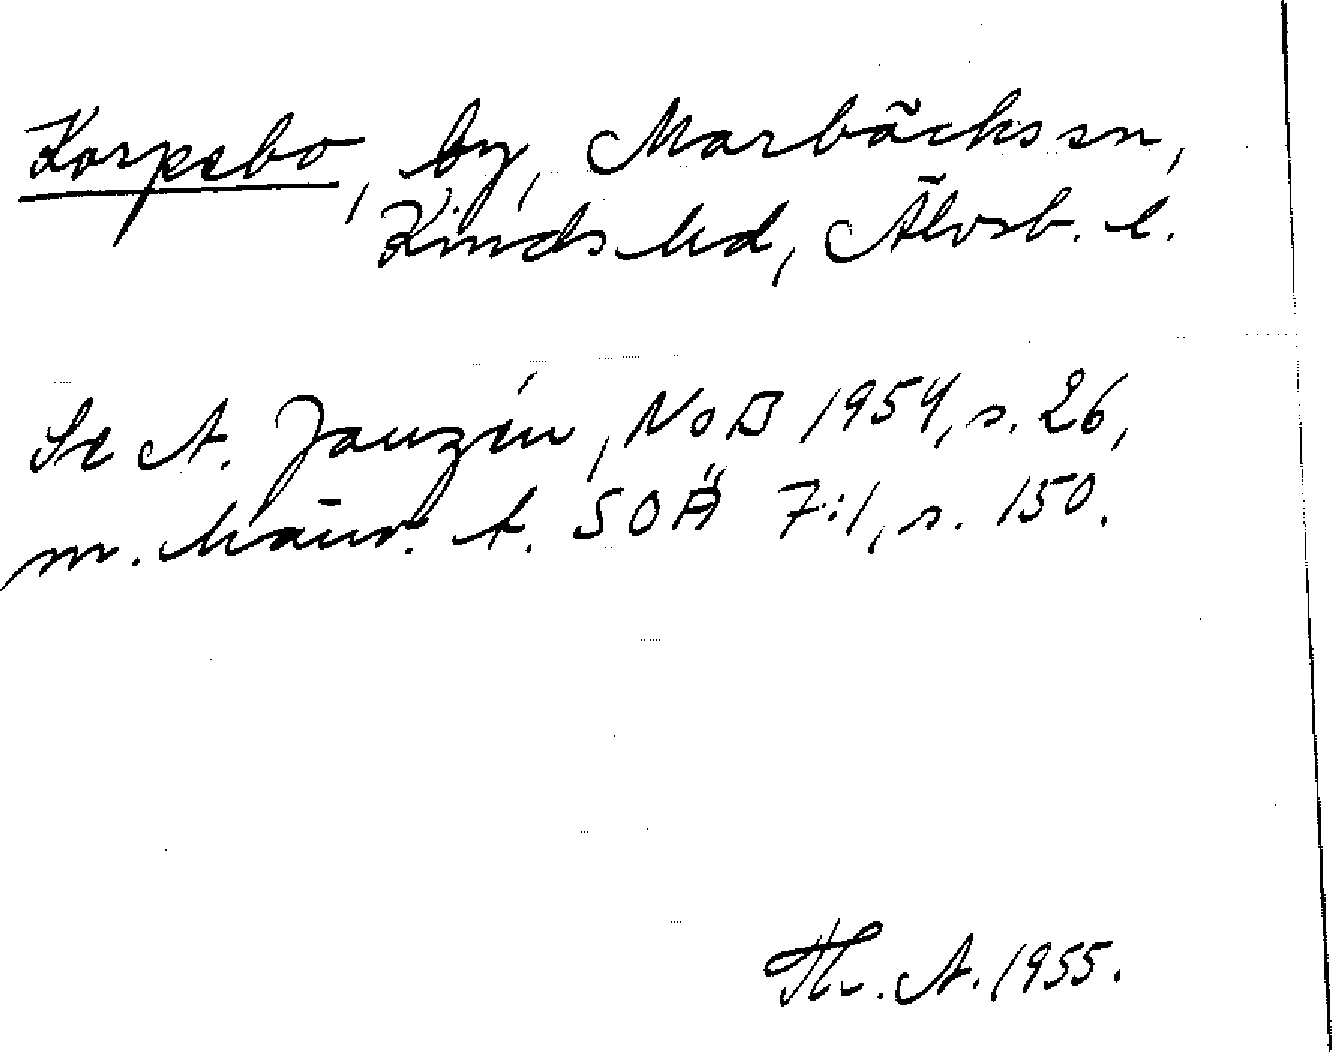 Korpebo, by, Marbäcks sn,
Kinds hd, Älvsb. l.
Se A. Janzén, NoB 1954, s. 26,
m. hänv. t. SOÄ 7:1, s. 150.
Th. A. 1955.